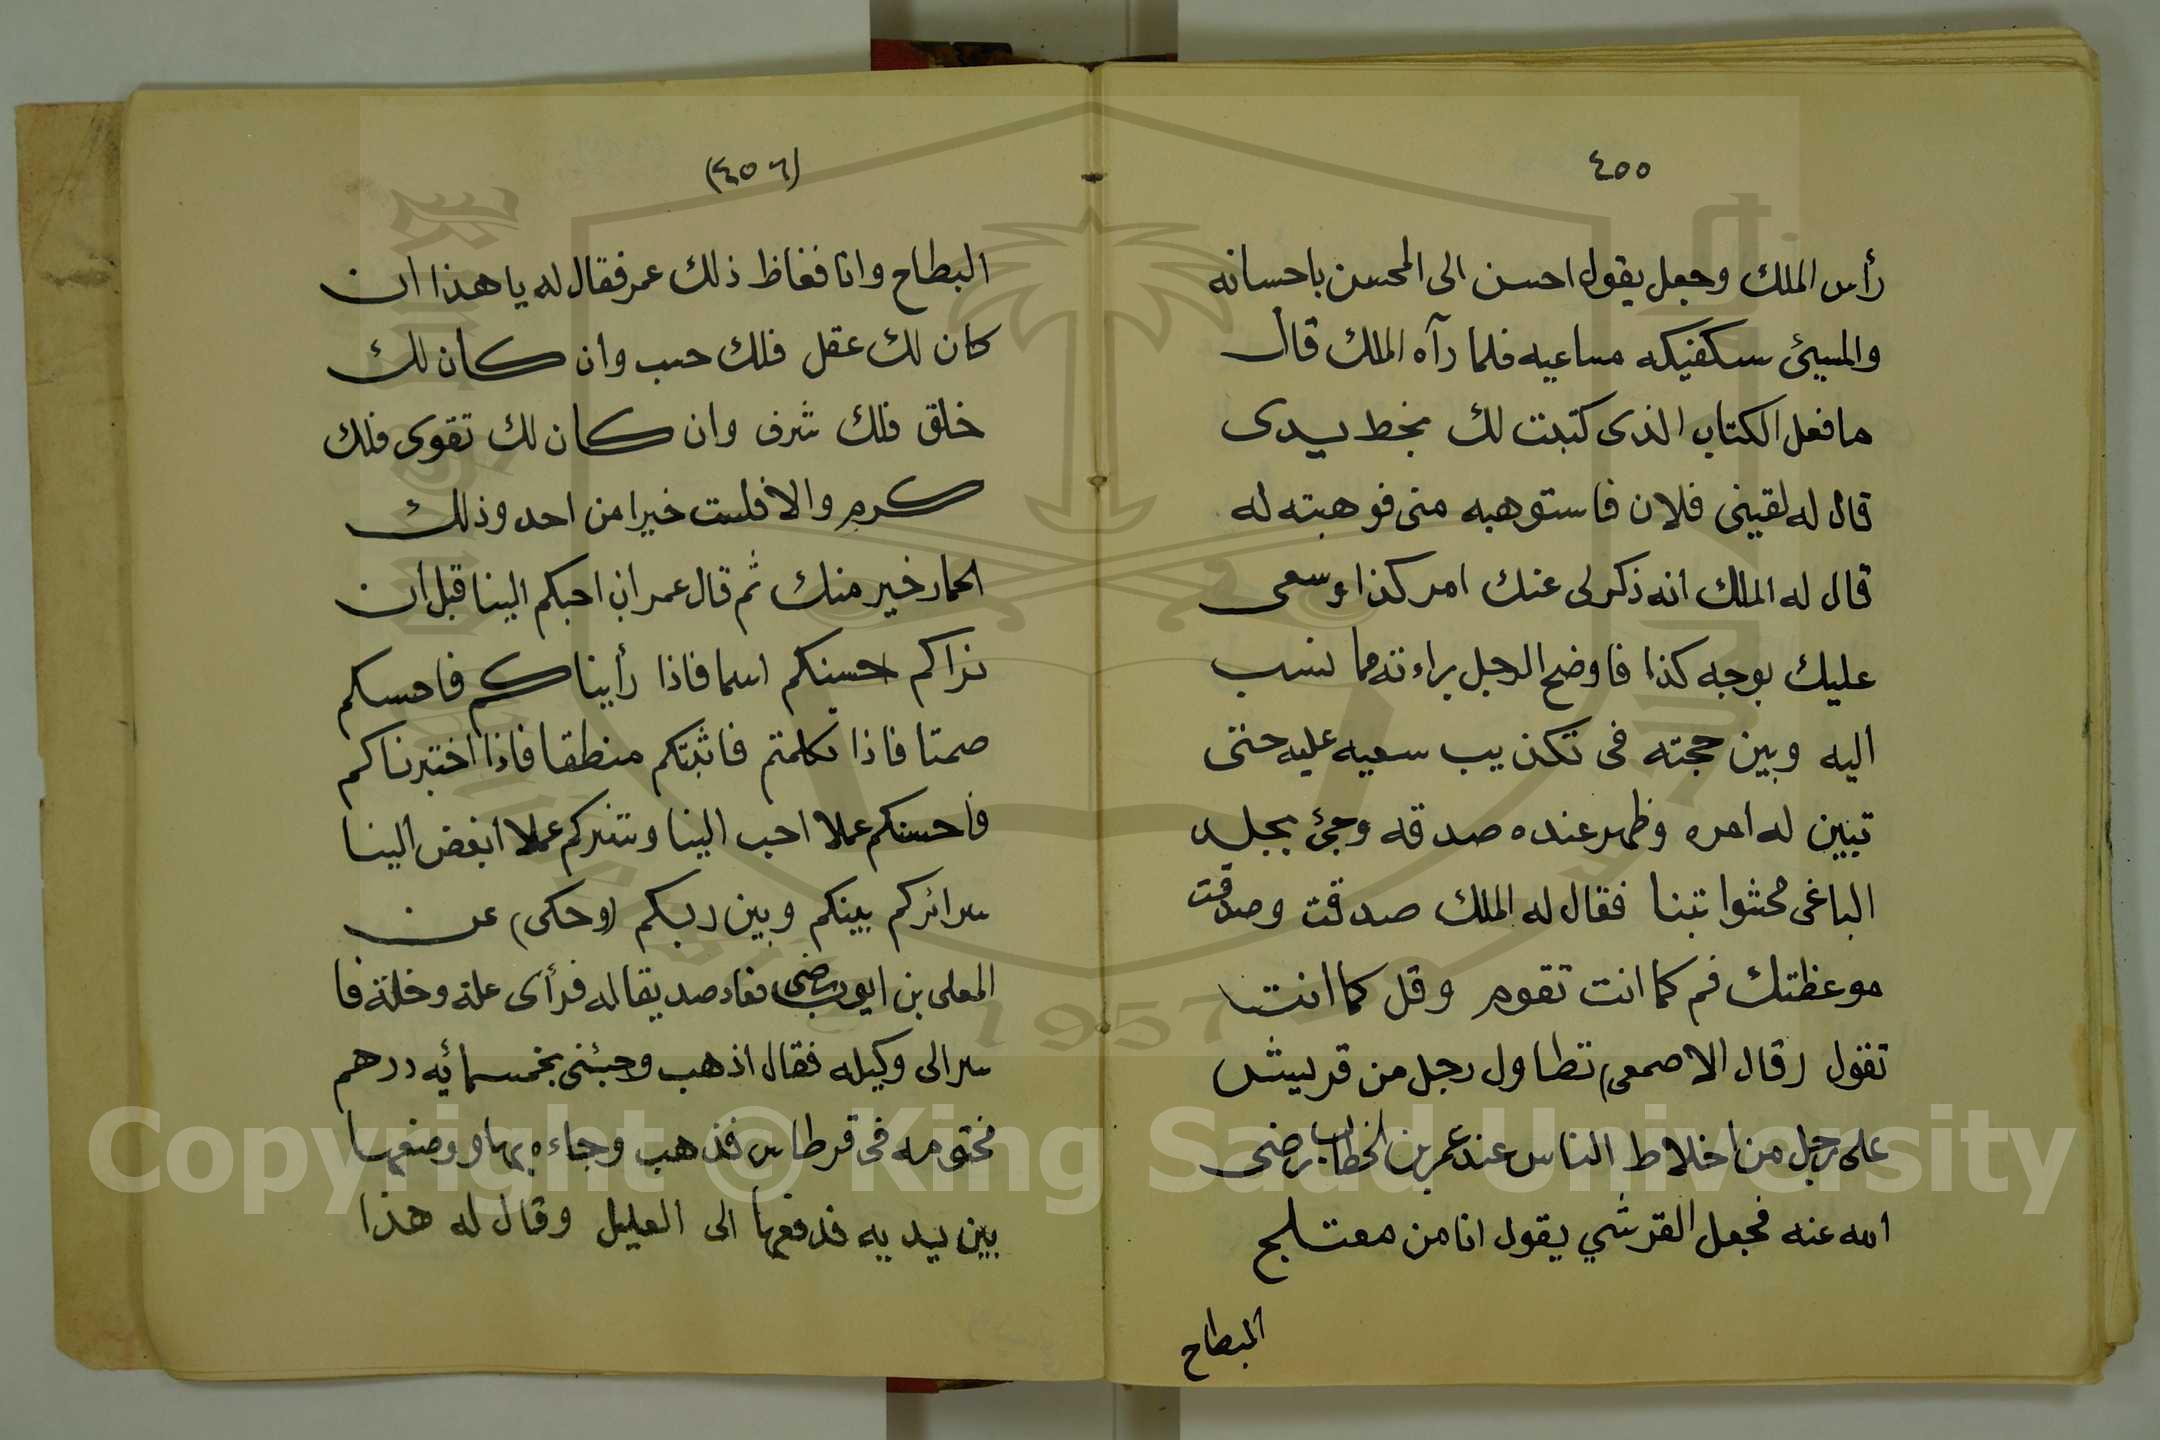 ٤٥٥
رأس الملك وجعل يقول احسن الى المحسن باحسانه
والمسيئ سكفيكه مساعيه فلما رآه الملك قال
ما فعل الكتاب الذى كتبت لك بخط يدى
قال له لقينى فلان فاستوهبه منى فوهبته له
قال له الملك انه ذكر لى عنك امر كذا وسعى
عليك بوجه كذا فاوضح الرجل براءته مما نسب
اليه وبين حجته فى تكذيب سعيه عليه حتى
تبين له امره وظهر عنده صدقه وجئ بجلد
الباغى محشوا تبنا فقال له الملك صدقت وصدقت
موعظتك قم كما انت تقوم وقل كما انت
تقول (قال الاصمعى) تطاول رجل من قريش
على رجل من اخلاط الناس عند عمر بن الخطاب رضى
الله عنه فجعل القرشي يقول انا من معتلج
البطاح
(٤٥٦)
البطاح وانا فغاظ ذلك عمر فقال له يا هذا ان
كان لك عقل فلك حسب وان كان لك
خلق فلك شرف وان كان لك تقوى فلك
كرم والا فلست خيرا من احد وذلك
الحمار خير منك ثم قال عمر ان احبكم الينا قبل ان
نراكم احسنكم اسما فاذا رأيناكم فاحسكم
صمتا فاذا تكلمتم فاثبتكم منطقا فاذا اختبرناكم
فاحسنكم عملا احب الينا وشركم عملا ابغض الينا
سرائركم بينكم وبين ربكم (وحكى) عن
المعلى بن ايوب رضى فعاد صديقا له فرأى علة وخلة فا
سر الى وكيله فقال اذهب وجئنى بخمسمائه درهم
مختومه فى قرطاس فذهب وجاءه بها ووضعها
بين يديه فدفعها الى العليل وقال له هذا
Copyright © King Saud University
1957